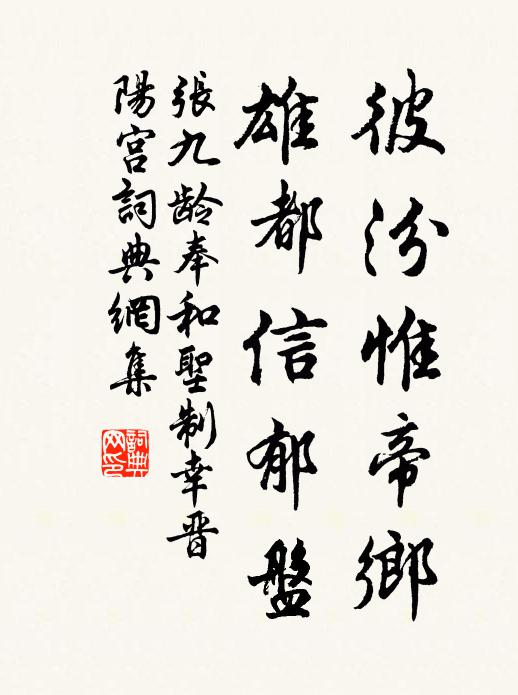 彼汾惟帝鄉
雄都信郁盤
張九齡奉和聖制幸晋
陽宮詞典網集
詞典網印